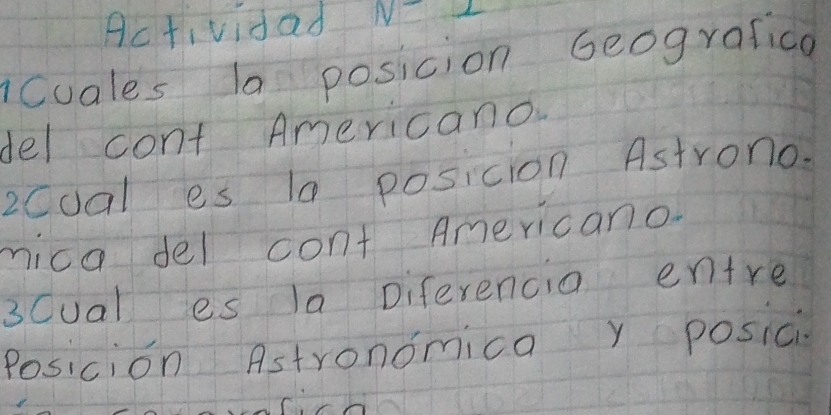 Actividad N= 1
1Cuales la posicion Geografico
del cont Americano.
2Cual es la posicion Astrono-
mica del cont Americano.
3Cual es la Diferencia entre
Posición Astronómica y posici-